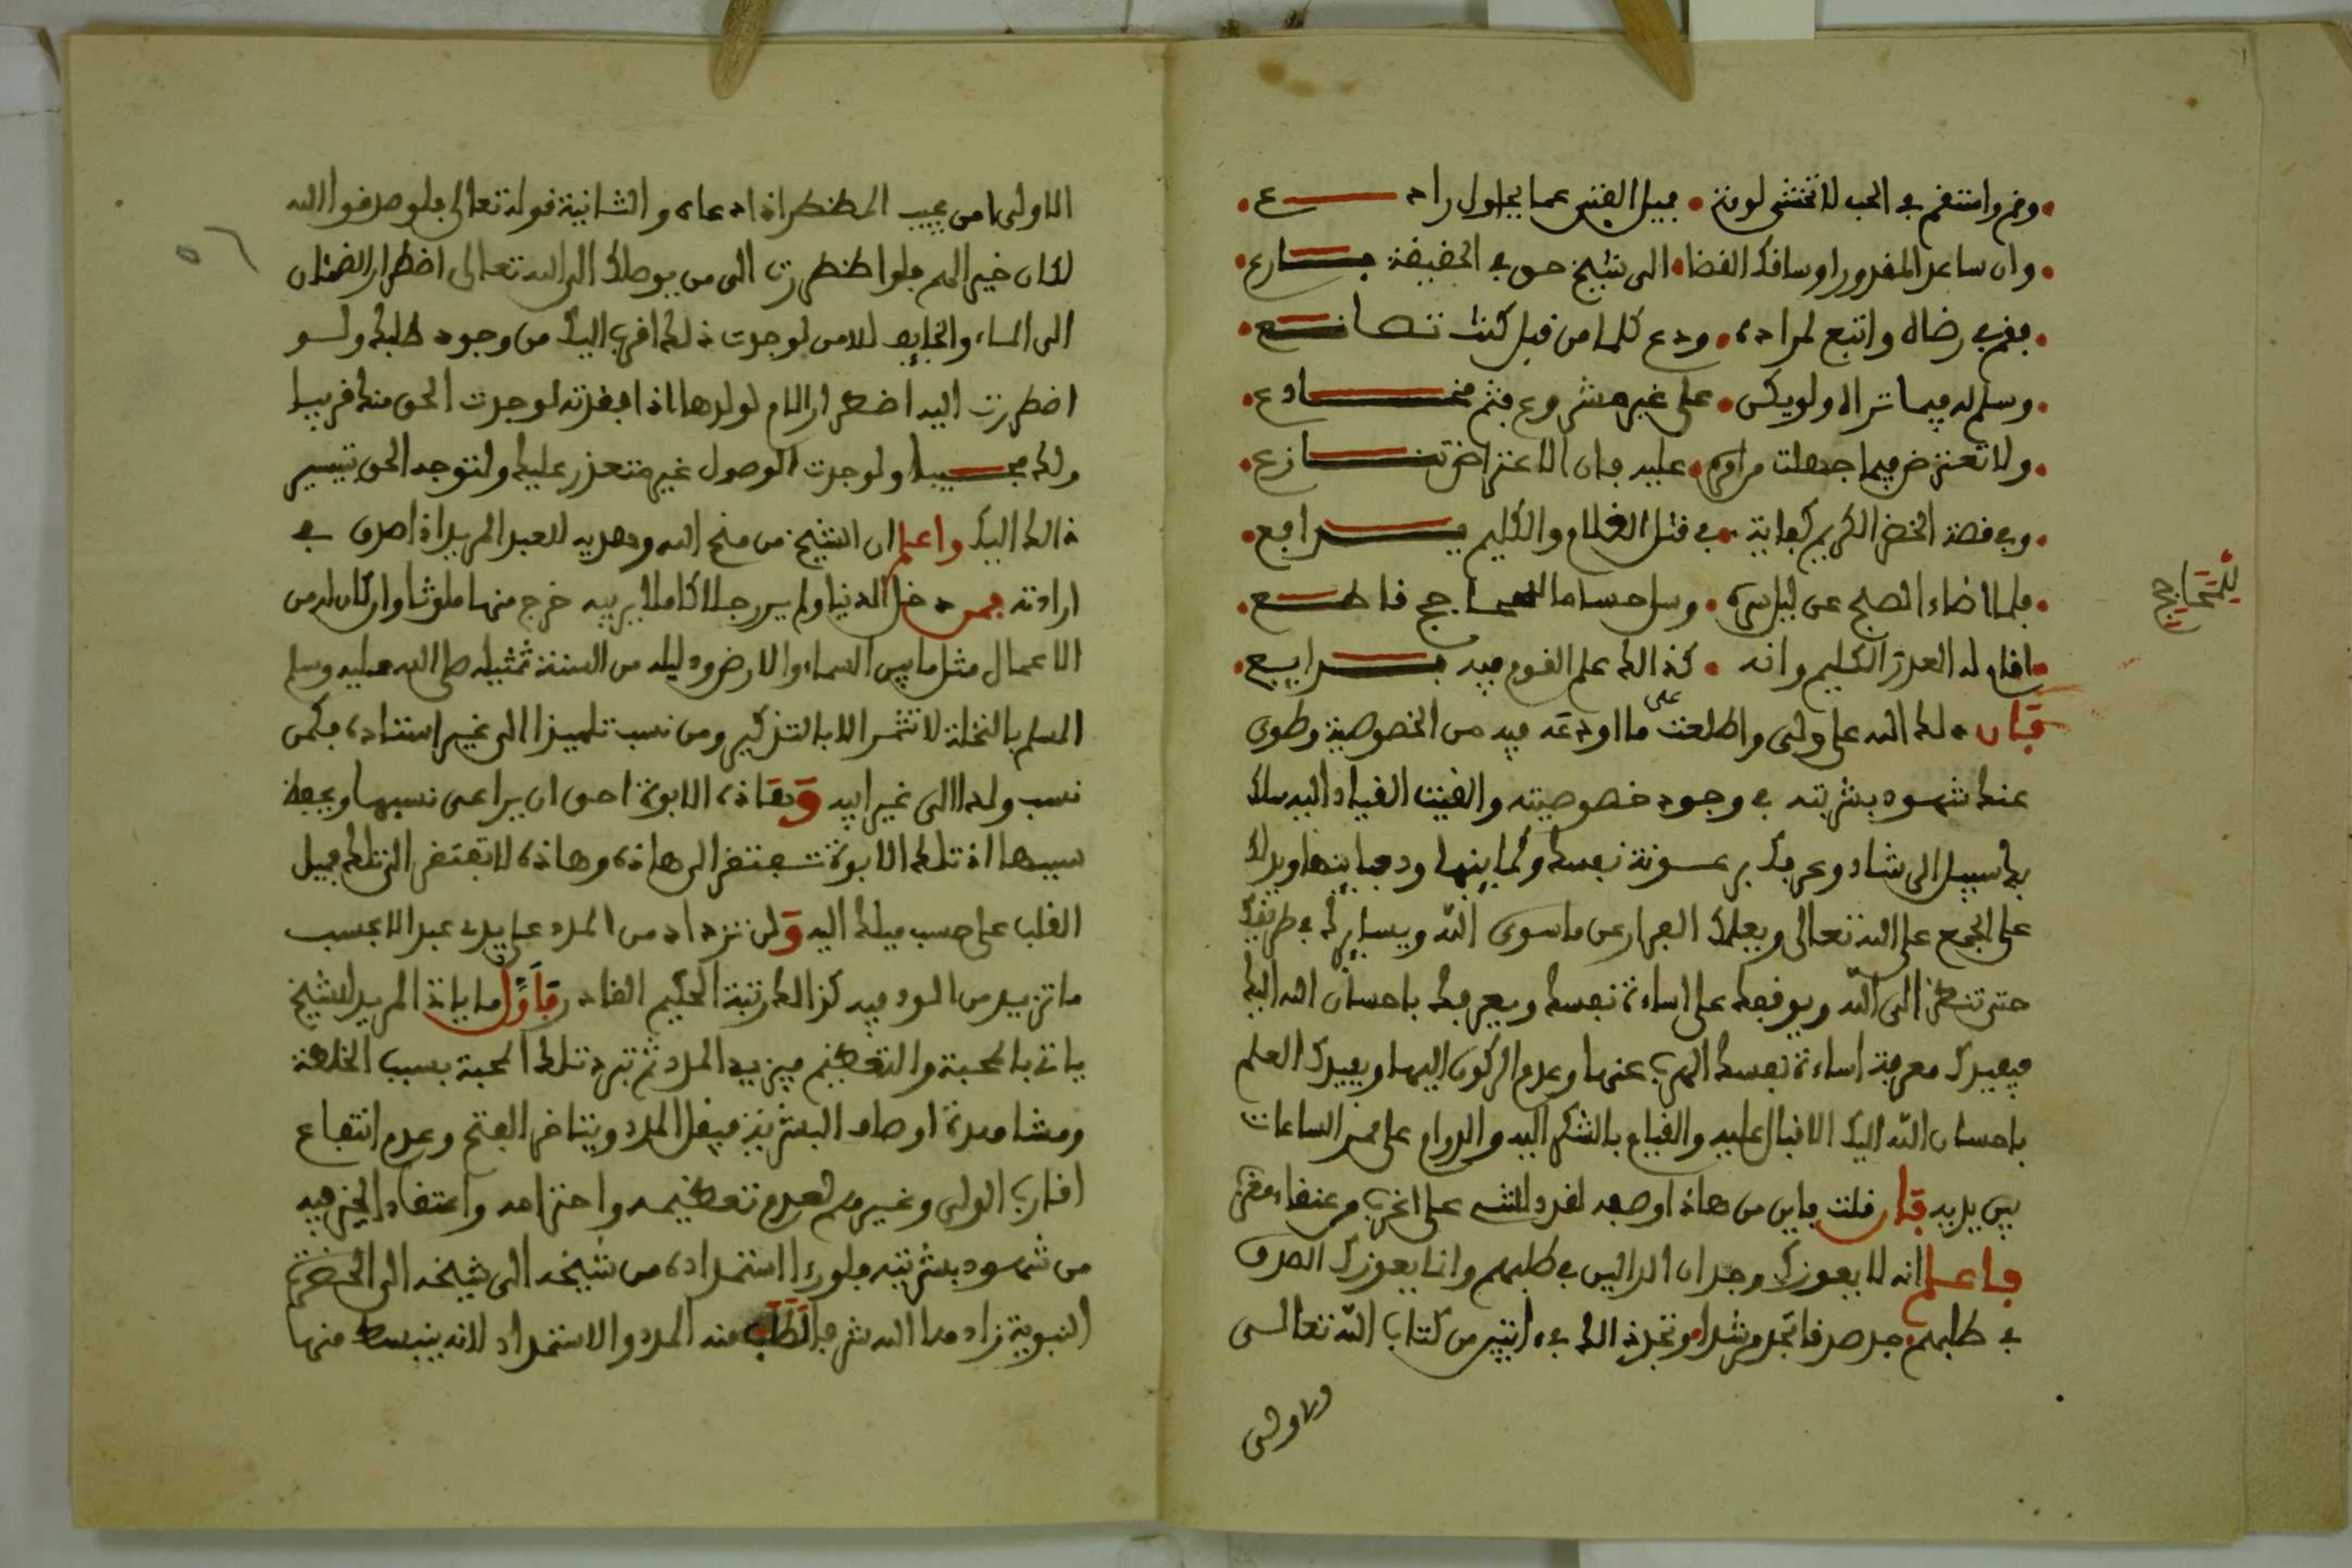 وقم واستقم في الحب لا تخشى لومة فميل الفتى عما يحاول رادع
وان ساعد المقدور او ساقك القضا الى شيخ حق في الحقيقة بارع
فقم في رضاه واتبع لمراده ودع كلما من قبل كنت تصانع
وسلم له فيما تراه ولو يكن على غير مشروع فثم مخادع
ولا تعترض فيما جهلت من امره عليه فان الاعتراض تنازع
وفي قصة الخضر الكريم كفاية في قتل الغلام والكليم يدافع
فلما اضاء الصبح عن ليل سره وسل حساما للمحاجج قاطع
للمحاجج
اقام له العذر الكليم وانه كذالك علم القوم فيه بدايع
فان دلك الله على ولي واطلعت على ما اودعه فيه من الخصوصية وطوى
عنك شهود بشريته في وجود خصوصيته والقيت القياد اليه سلك
بك سبيل الرشاد وعرفك برعونة نفسك وكماينها ودفاينها ويدلك
على الجمع على الله تعالى ويعلمك الفرار عن ما سوى الله ويسايرك في طريقك
حتى تنظر الى الله ويوقفك على اساءة نفسك ويعرفك باحسان الله اليك
فيفيدك معرفة اساءة نفسك الهرب عنها وعدم الركون اليها ويفيدك العلم
باحسان الله اليك الاقبال عليه والقيام بالشكر اليه والدوام على ممر الساعات
بين يديه فان قلت فاين من هاذا وصفه لقد دللتني على اغرب من عنقاء مغرب
فاعلم انه لا يعوزك وجدان الدالين في طلبهم وانما يعوزك الصدق
في طلبهم جد صدقا تجد مرشدا وتجد ذالك في ءايتين من كتاب الله تعالى
الاولى
الاولى امن يجيب المضطر اذا دعاه والثانية قوله تعالى فلو صدقوا الله
لكان خيرا لهم فلو اضطررت الى من يوصلك الى الله تعالى اضطرار الضمئان
الى الماء والخايف للامن لوجدت ذلك اقرب اليك من وجود طلبك ولو
اضطررت اليه اضطرار الام لولدها اذا فقدته لوجدت الحق منك قريبا
ولك مجيبا ولوجدت الوصول غير متعذر عليك ولتوجه الحق بتيسير
ذالك اليك واعلم ان الشيخ من منح الله وهديه للعبد المريد اذا صدق في
ارادته فمن دخل الدنيا ولم ير رجلا كاملا يربيه خرج منها ملوثا ولو كان له من
الاعمال مثل ما بين السماء والارض ودليله من السنة تمثيله صلى الله عليه وسلم
المسلم بالنخلة لا تثمر الا بالتذكير ومن نسب تلميذا الى غير استاذه فكمن
نسب ولدا الى غير ابيه وهاذه الابوة احق ان يراعى نسبها ويحفظ
سببها اذ تلك الابوة تفتقر الى هاذه وهاذه لا تفتقر الى تلك فميل
القلب على حسب ميلك اليه ولن تزداد من المدد على يدي عبد الا بحسب
ما تزيد من الود فيه كذالك رتبة الحكيم القادر فاول ما ياتي المريد للشيخ
ياتي بالمحبة والتعظيم فيزيد المدد ثم تبرد تلك المحبة بسبب الخلطة
ومشاهدة اوصاف البشرية فيقل المدد ويتاخر الفتح وعدم انتفاع
اقارب الولي وغيرهم لعدم تعظيمه واحترامه واعتقاد الخير فيه
من شهود بشريته فلو رءا استمداده من شيخه الى شيخه الى الحضرة
النبوية زادها الله شرفا لطلب منه المدد والاستمداد لانه ينبسط منها